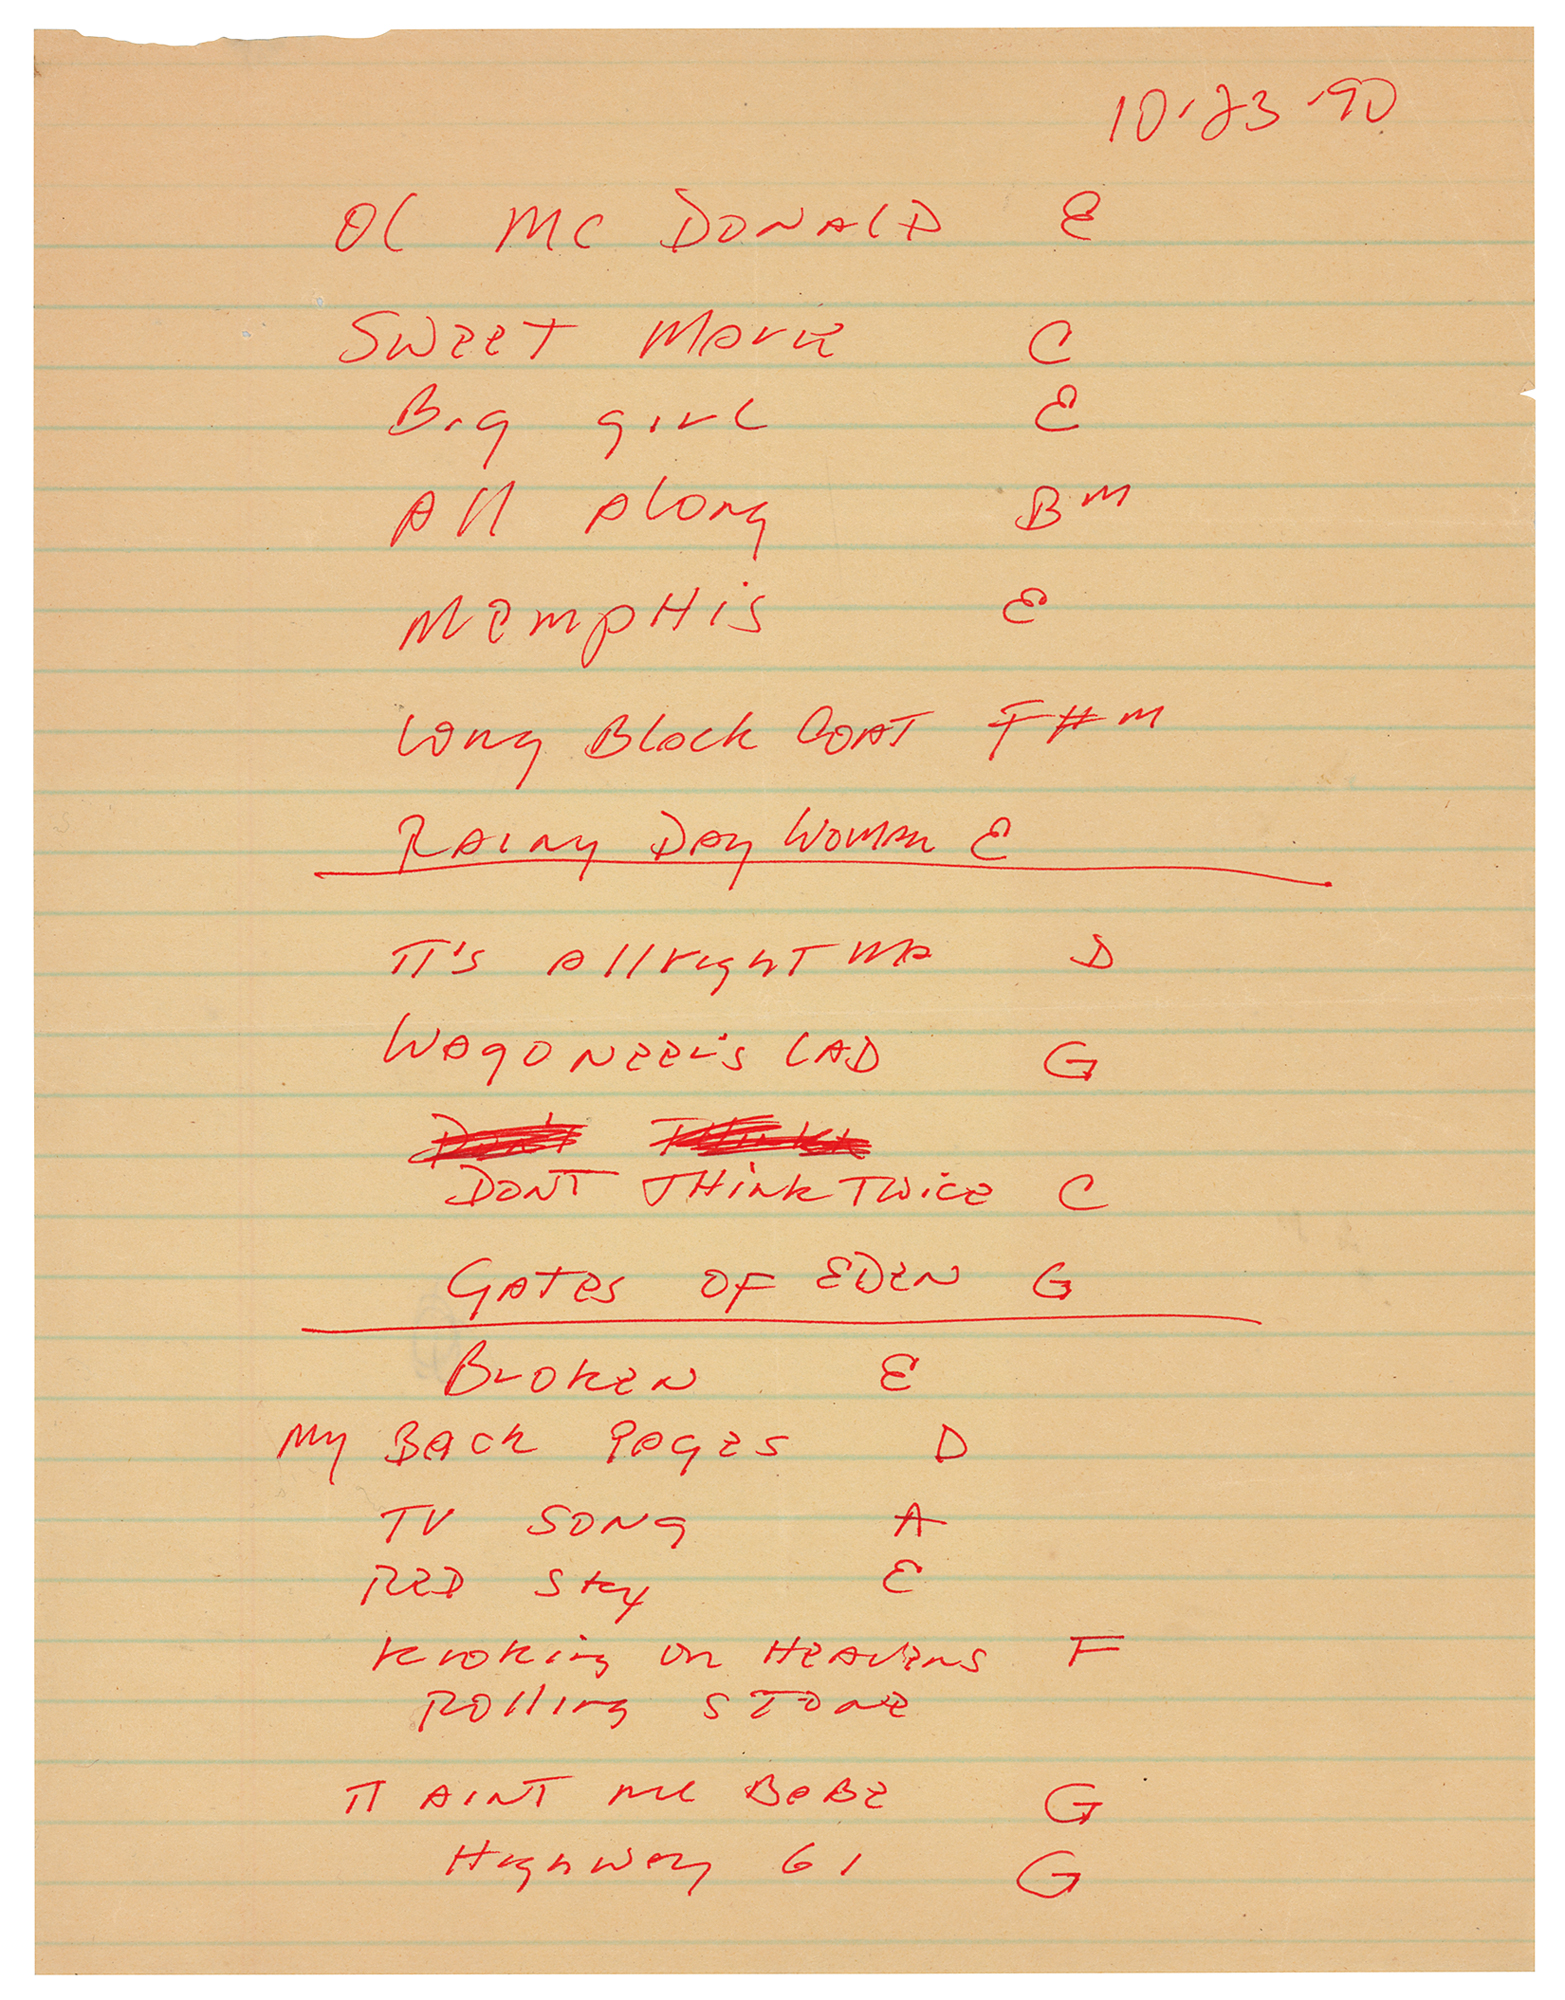 10-23-90
Ol MC DONALD E
SWEET MARIE C
Big girl E
All Along Bm
MEmpHis E
Long Black COAT F#m
RAiny DAy WOMAN E
IT's AllrighT MA D
WAgONEER'S LAD G
Don't Think
DONT THink TWice C
GATES OF EDEN G
BrOKEN E
My BACK PAGES D
TV SONG A
RED Sky E
KnoKing On HEAVENS F
ROlling STONE
IT AiNT ME BABE G
HighWAy 61 G